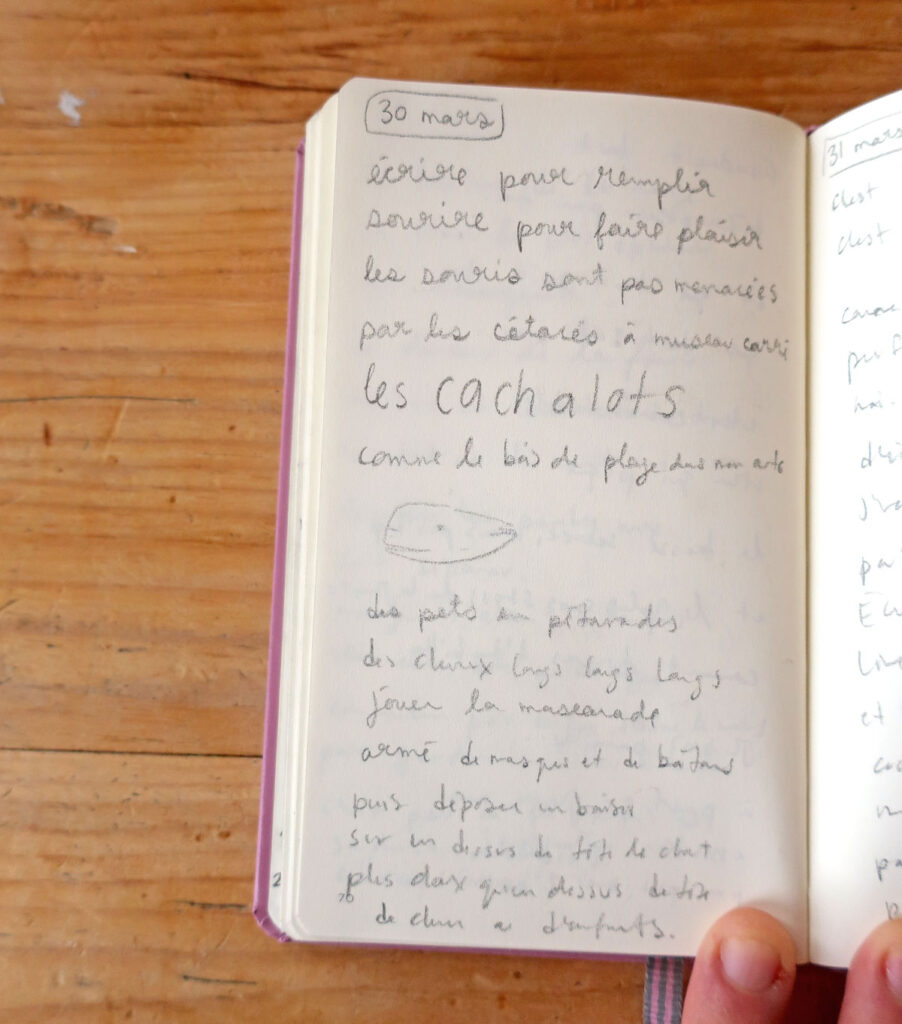 30 mars
écrire pour remplir
sourire pour faire plaisir
les souris sont pas menacées
par les cétacés à museau carré
les cachalots
comme le bois de plage dans mon
des pets en pétarades
des longs longs longs
jouer la mascarade
armé de masques et de bâtons
puis déposer un baiser
sur un dessus de tête de chat
plus doux qu'un dessus de tête
de d'enfants.
70
2
31 mars
c'est
c'est
et